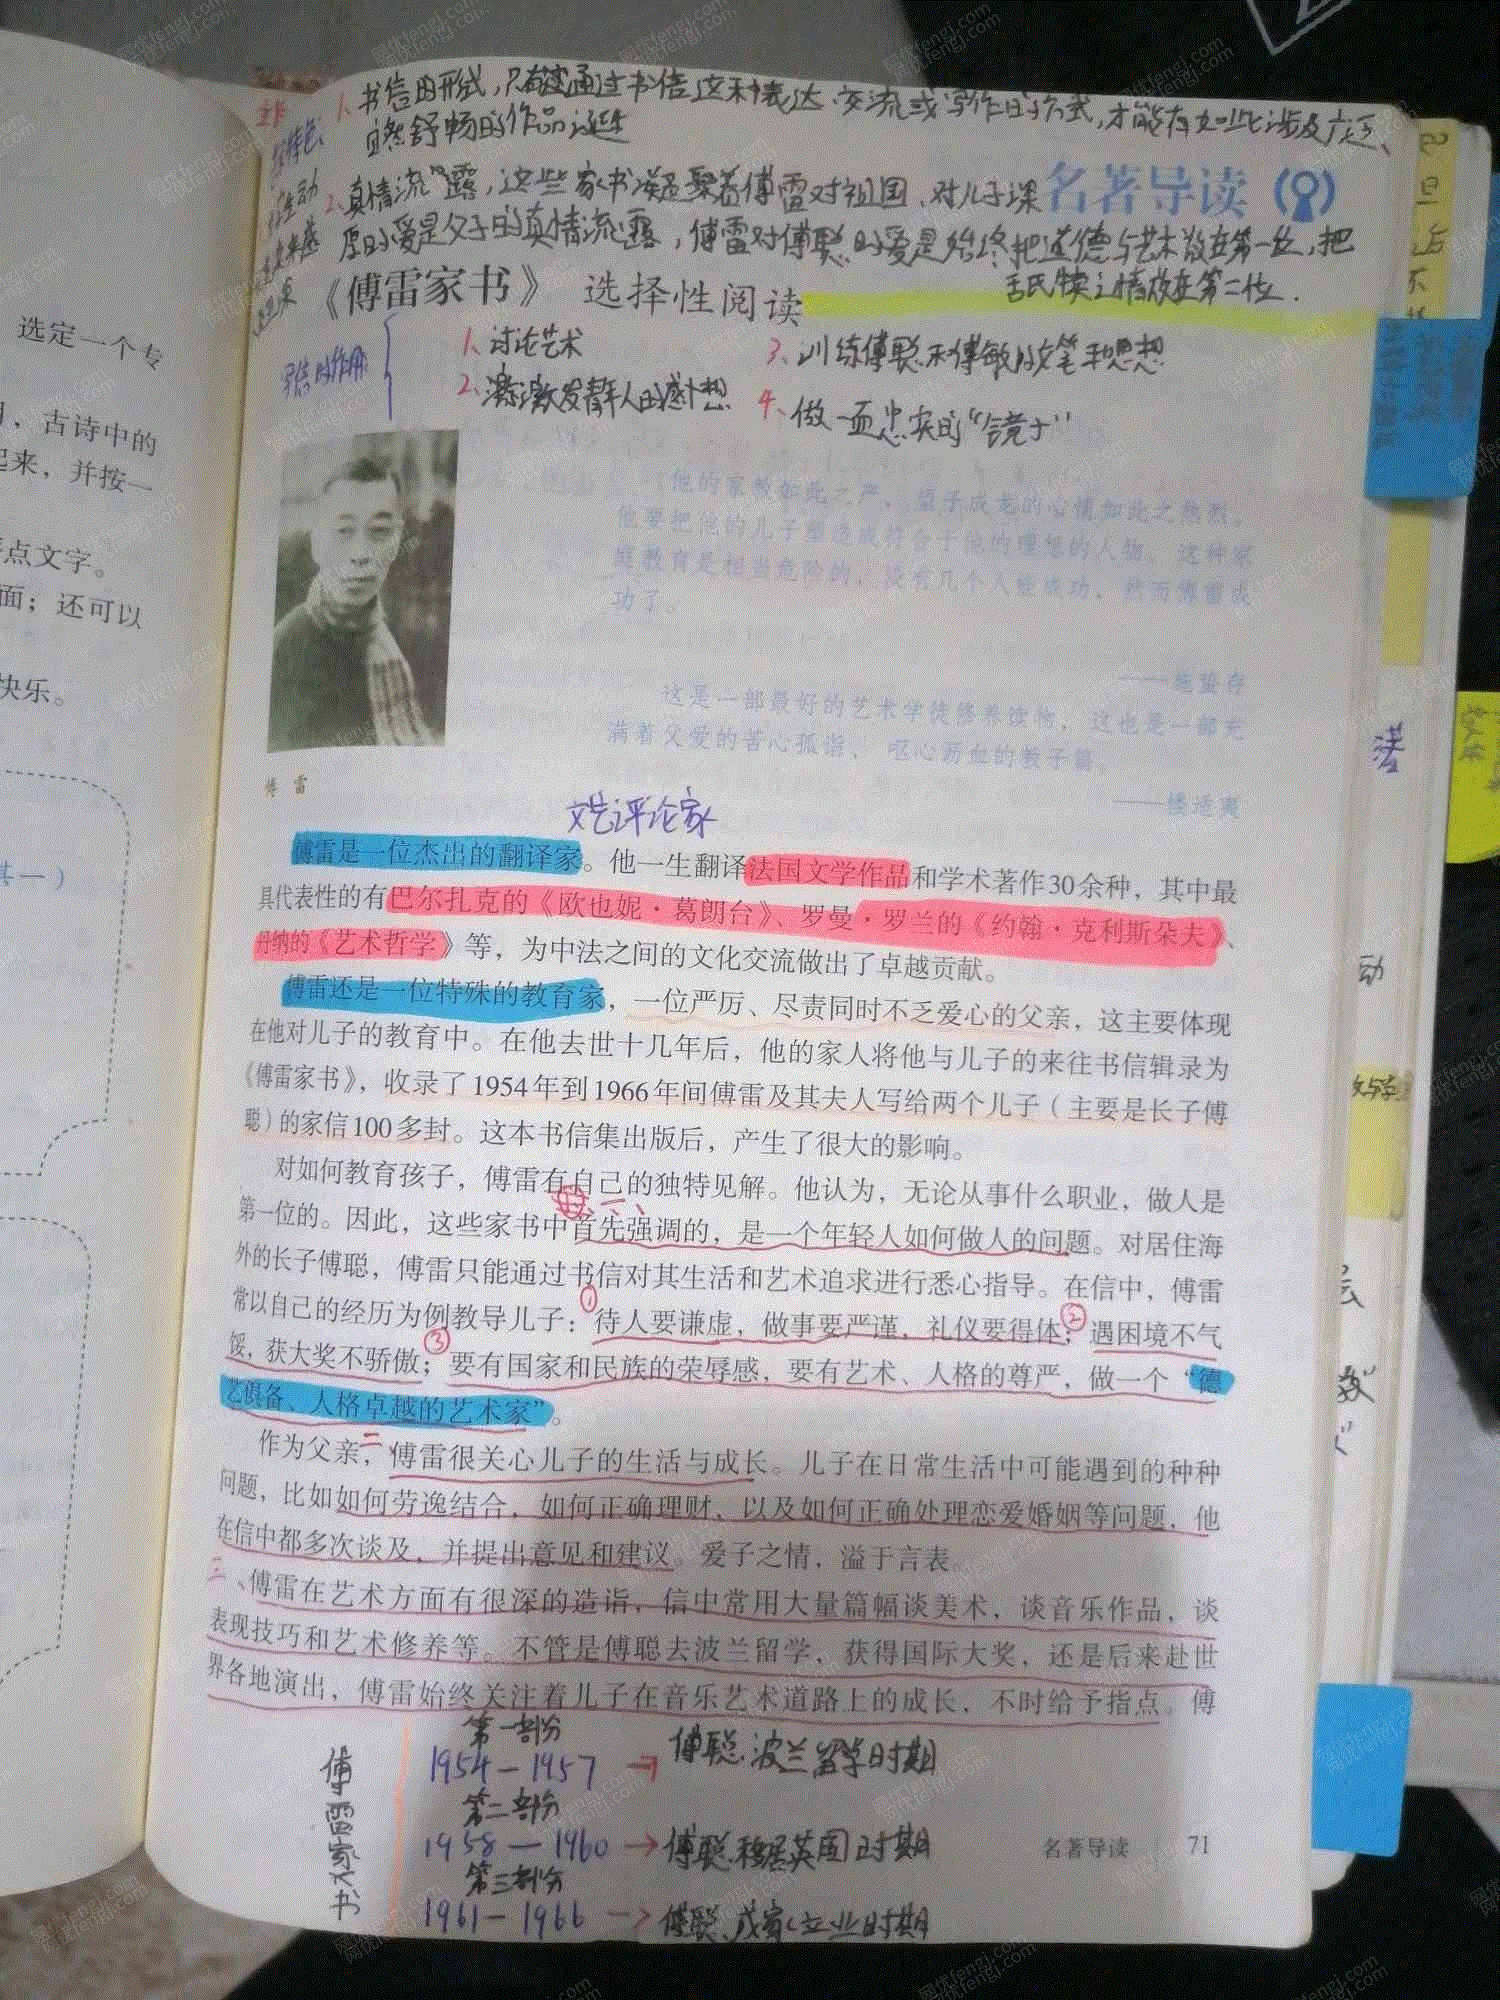 1、书信的形式，只有通过书信这种表达、交流或写作的方式，才能有如此涉及广泛、
自然舒畅的作品诞生
2、真情流露，这些家书凝聚着傅雷对祖国、对儿子深
厚的爱是父子的真情流露，傅雷对傅聪的爱是始终把道德与艺术放在第一位，把
舐犊之情放在第二位.
名著导读
《傅雷家书》 选择性阅读
写信的作用
1、讨论艺术
2、激发青年人的感想
3、训练傅聪和傅敏的文笔和思想
4、做一面忠实的“镜子”
他的家教如此之严、望子成龙的心情如此之热烈。
他要把他的儿子塑造成符合于他的理想的人物。这种家
庭教育是相当危险的，没有几个人能成功，然而傅雷成
功了。
——施蛰存
这是一部最好的艺术学徒修养读物，这也是一部充
满着父爱的苦心孤诣、呕心沥血的教子篇。
——楼适夷
傅 雷
文艺评论家
傅雷是一位杰出的翻译家。他一生翻译法国文学作品和学术著作30余种，其中最
具代表性的有巴尔扎克的《欧也妮·葛朗台》、罗曼·罗兰的《约翰·克利斯朵夫》、
丹纳的《艺术哲学》等，为中法之间的文化交流做出了卓越贡献。
傅雷还是一位特殊的教育家，一位严厉、尽责同时不乏爱心的父亲，这主要体现
在他对儿子的教育中。在他去世十几年后，他的家人将他与儿子的来往书信辑录为
《傅雷家书》，收录了1954年到1966年间傅雷及其夫人写给两个儿子（主要是长子傅
聪）的家信100多封。这本书信集出版后，产生了很大的影响。
对如何教育孩子，傅雷有自己的独特见解。他认为，无论从事什么职业，做人是
第一位的。因此，这些家书中首先强调的，是一个年轻人如何做人的问题。对居住海
外的长子傅聪，傅雷只能通过书信对其生活和艺术追求进行悉心指导。在信中，傅雷
常以自己的经历为例教导儿子：①待人要谦虚，做事要严谨，礼仪要得体；②遇困境不气
馁，获大奖不骄傲；③要有国家和民族的荣辱感，要有艺术、人格的尊严，做一个“德
艺俱备、人格卓越的艺术家”。
作为父亲，二、傅雷很关心儿子的生活与成长。儿子在日常生活中可能遇到的种种
问题，比如如何劳逸结合，如何正确理财，以及如何正确处理恋爱婚姻等问题，他
在信中都多次谈及，并提出意见和建议。爱子之情，溢于言表。
三、傅雷在艺术方面有很深的造诣，信中常用大量篇幅谈美术，谈音乐作品，谈
表现技巧和艺术修养等。不管是傅聪去波兰留学，获得国际大奖，还是后来赴世
界各地演出，傅雷始终关注着儿子在音乐艺术道路上的成长，不时给予指点。傅
傅雷家书
第一部份
1954—1957 → 傅聪波兰留学时期
第二部份
1958—1960 → 傅聪移居英国时期
第三部份
1961—1966 → 傅聪成家立业时期
名著导读 71
选定一个专
，古诗中的
起来，并按一
评点文字。
面；还可以
快乐。
共一）